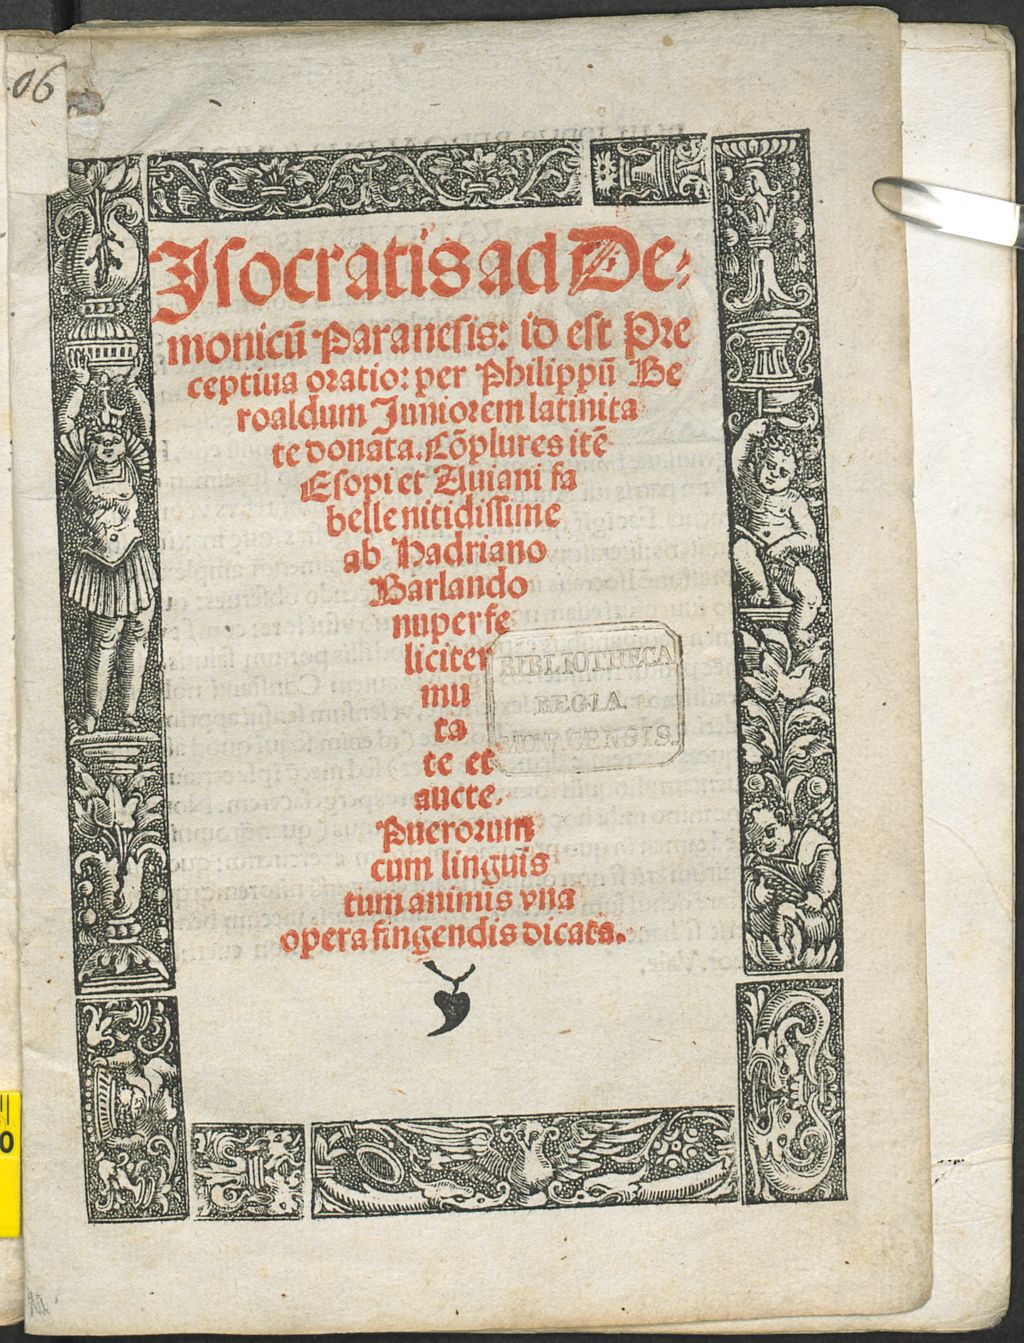 06
Iſocratis ad De⸗
monicū Paraneſis: id eſt Pre
ceptiua oratio: per Philippū Be
roaldum Juniorem latinita
te donata. Cōplures itē
Eſopi et Auiani fa
belle nitidiſſime
ab Hadriano
Barlando
nuper fe
liciter
mu
ta
te et
aucte.
Puerorum
cum linguis
tum animis vna
opera fingendis dicate.
BIBLIOTHECA
REGIA
MONACENSIS.